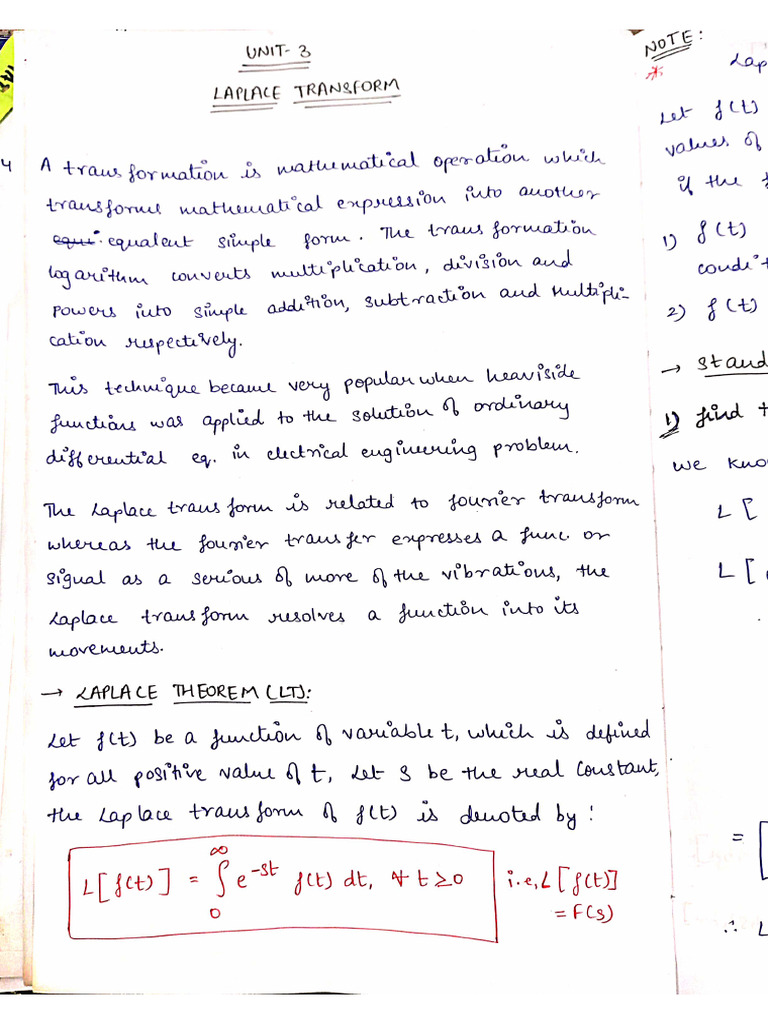 UNIT- 3
LAPLACE TRANSFORM
A transformation is mathematical operation which
transforms mathematical expression into another
equalent simple form. The transformation
logarithm converts multiplication, division and
powers into simple addition, subtraction and multipli-
cation respectively.
This technique became very popular when heaviside
functions was applied to the solution of ordinary
differential eq. in electrical engineering problem.
The Laplace transform is related to fourier transform
whereas the fourier transfer expresses a func. or
signal as a serious of more of the vibrations, the
Laplace transform resolves a function into its
movements.
→ LAPLACE THEOREM (LT):
Let f(t) be a function of variable t, which is defined
for all positive value of t, Let S be the real constant,
the Laplace transform of f(t) is denoted by:
L[f(t)] = ∫₀^∞ e^-st f(t) dt, ∀ t≥0 i.e, L[f(t)]
= F(s)
NOTE:
*
Lap
Let f(t)
values of
if the
1) f(t)
condit
2) f(t)
→ stand
1) find t
we kno
L[
L[
=
∴ L